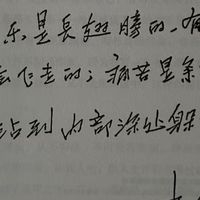 乐是长翅膀的，有
会飞走的；痛苦是条
钻到内部深处躲